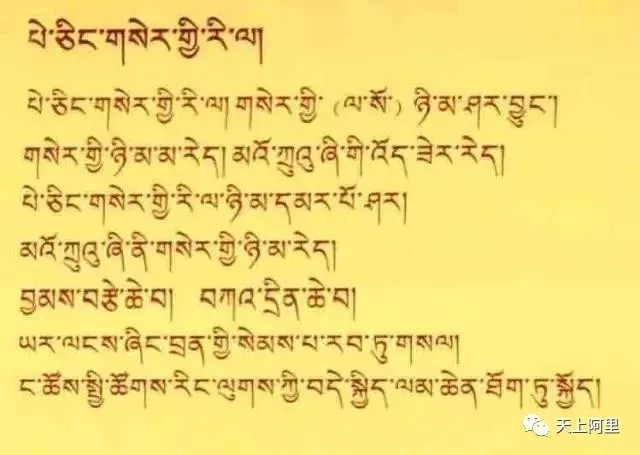 པེ་ཅིང་གསེར་གྱི་རི་ལ།
པེ་ཅིང་གསེར་གྱི་རི་ལ། གསེར་གྱི་ (ལ་སོ་) ཉི་མ་ཤར་བྱུང་།
གསེར་གྱི་ཉི་མ་མ་རེད། མའོ་ཀྲུའུ་ཞི་གི་འོད་ཟེར་རེད།
པེ་ཅིང་གསེར་གྱི་རི་ལ་ཉི་མ་དམར་པོ་ཤར།
མའོ་ཀྲུའུ་ཞི་ནི་གསེར་གྱི་ཉི་མ་རེད།
བྱམས་བརྩེ་ཆེ་བ། བཀའ་དྲིན་ཆེ་བ།
ཡར་ལངས་ཞིང་བྲན་གྱི་སེམས་པ་རབ་ཏུ་གསལ།
ང་ཚོས་སྤྱི་ཚོགས་རིང་ལུགས་ཀྱི་བདེ་སྐྱིད་ལམ་ཆེན་ཐོག་ཏུ་སྐྱོད།
天上阿里